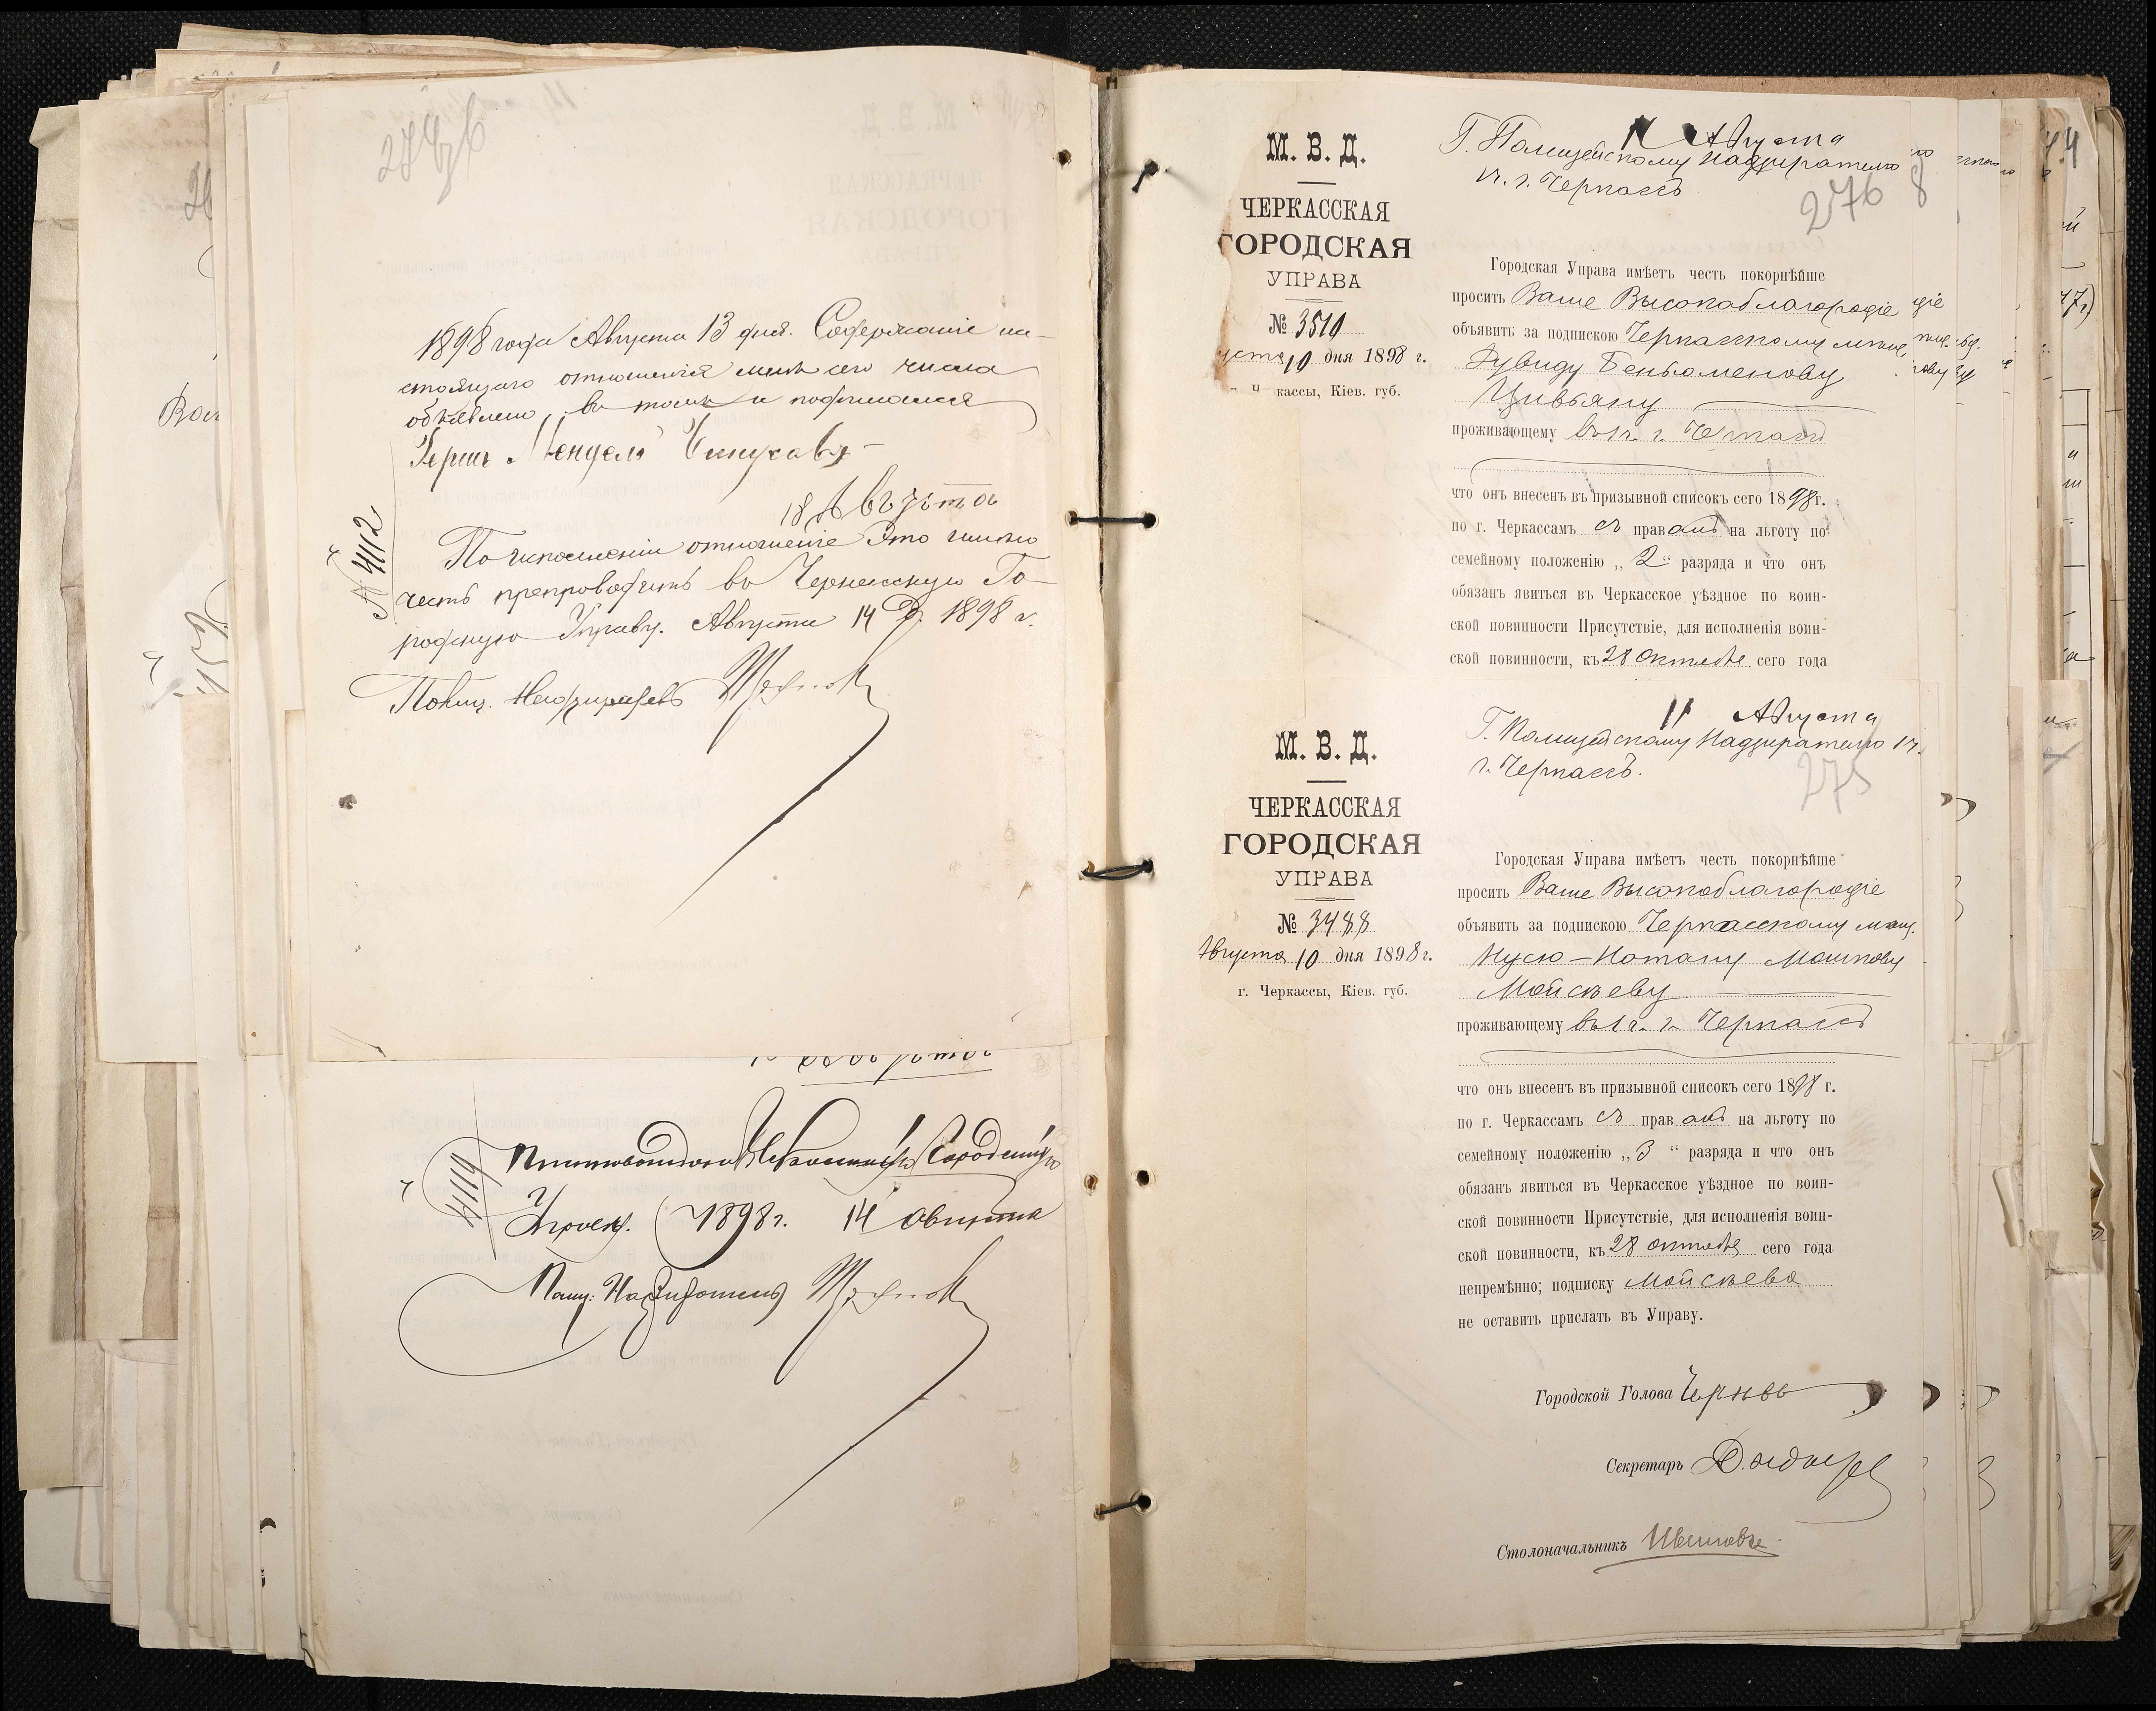 274 об
1898 года Августа 13 дня. Содержание на-
стоящаго отношения мне сего числа
объявлено, в том и подписался
Герш Мендель
18 Августа
№ 4112
По исполнении отношение это имею
честь препроводить в Черкасскую Го-
родскую Управу. Августа 14 д. 1898 г.
Полиц. Надзиратель
4119
Черкасскую Городскую
Управу. 1898 г. 14 августа
Полиц. Надзиратель
М. В. Д.
ЧЕРКАССКАЯ
ГОРОДСКАЯ
УПРАВА
№ 3510
10 дня 1898 г.
кассы, Кіев. губ.
Августа
Г. Полицейскому Надзирателю
1 ч. г. Черкассъ
276
Городская Управа имѣетъ честь покорнѣйше
просить Ваше Высокоблагородіе
объявить за подпискою Черкасскому мѣщ.
Дувиду Беньоменову
Цивьяну
проживающему въ 1 ч. г. Черкассъ
что онъ внесенъ въ призывной списокъ сего 1898 г.
по г. Черкассамъ съ правамъ на льготу по
семейному положенію „2“ разряда и что онъ
обязанъ явиться въ Черкасское уѣздное по воин-
ской повинности Присутствіе, для исполненія воин-
ской повинности, къ 28 октября сего года
М. В. Д.
ЧЕРКАССКАЯ
ГОРОДСКАЯ
УПРАВА
№ 3488
Августа 10 дня 1898 г.
г. Черкассы, Кіев. губ.
11 Августа
Г. Полицейскому Надзирателю 1 ч.
г. Черкассъ.
275
Городская Управа имѣетъ честь покорнѣйше
просить Ваше Высокоблагородіе
объявить за подпискою Черкасскому мѣщ.
Нусю-Нотану Мошкову
Мойсѣеву
проживающему въ 1 ч. г. Черкассъ
что онъ внесенъ въ призывной списокъ сего 1898 г.
по г. Черкассамъ съ правамъ на льготу по
семейному положенію „3“ разряда и что онъ
обязанъ явиться въ Черкасское уѣздное по воин-
ской повинности Присутствіе, для исполненія воин-
ской повинности, къ 28 октября сего года
непремѣнно; подписку Мойсѣева
не оставить прислать въ Управу.
Городской Голова
Секретарь
Столоначальникъ